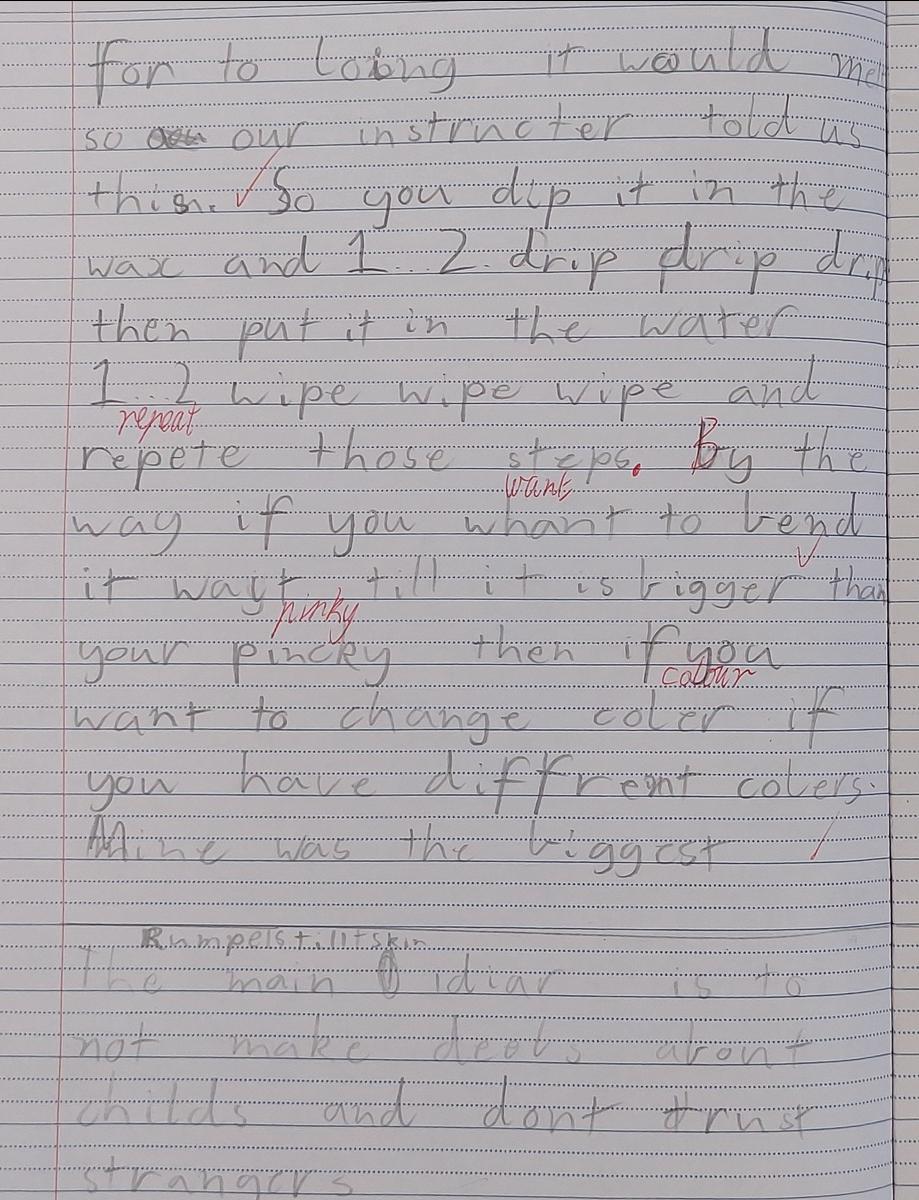 for to long it would mel
so our instructer told us
this. So you dip it in the
wax and 1...2. drip drip drip
then put it in the water
1...2 wipe wipe wipe and
repeat
repete those steps. By the
want
way if you whant to bend
it wayt till it is bigger than
pinky
your pincky then if you
colour
want to change coler if
you have diffrent colers.
Mine was the biggest
Rumpelstilltskin
The main idiar is to
not make deols about
childs and dont trust
strangers